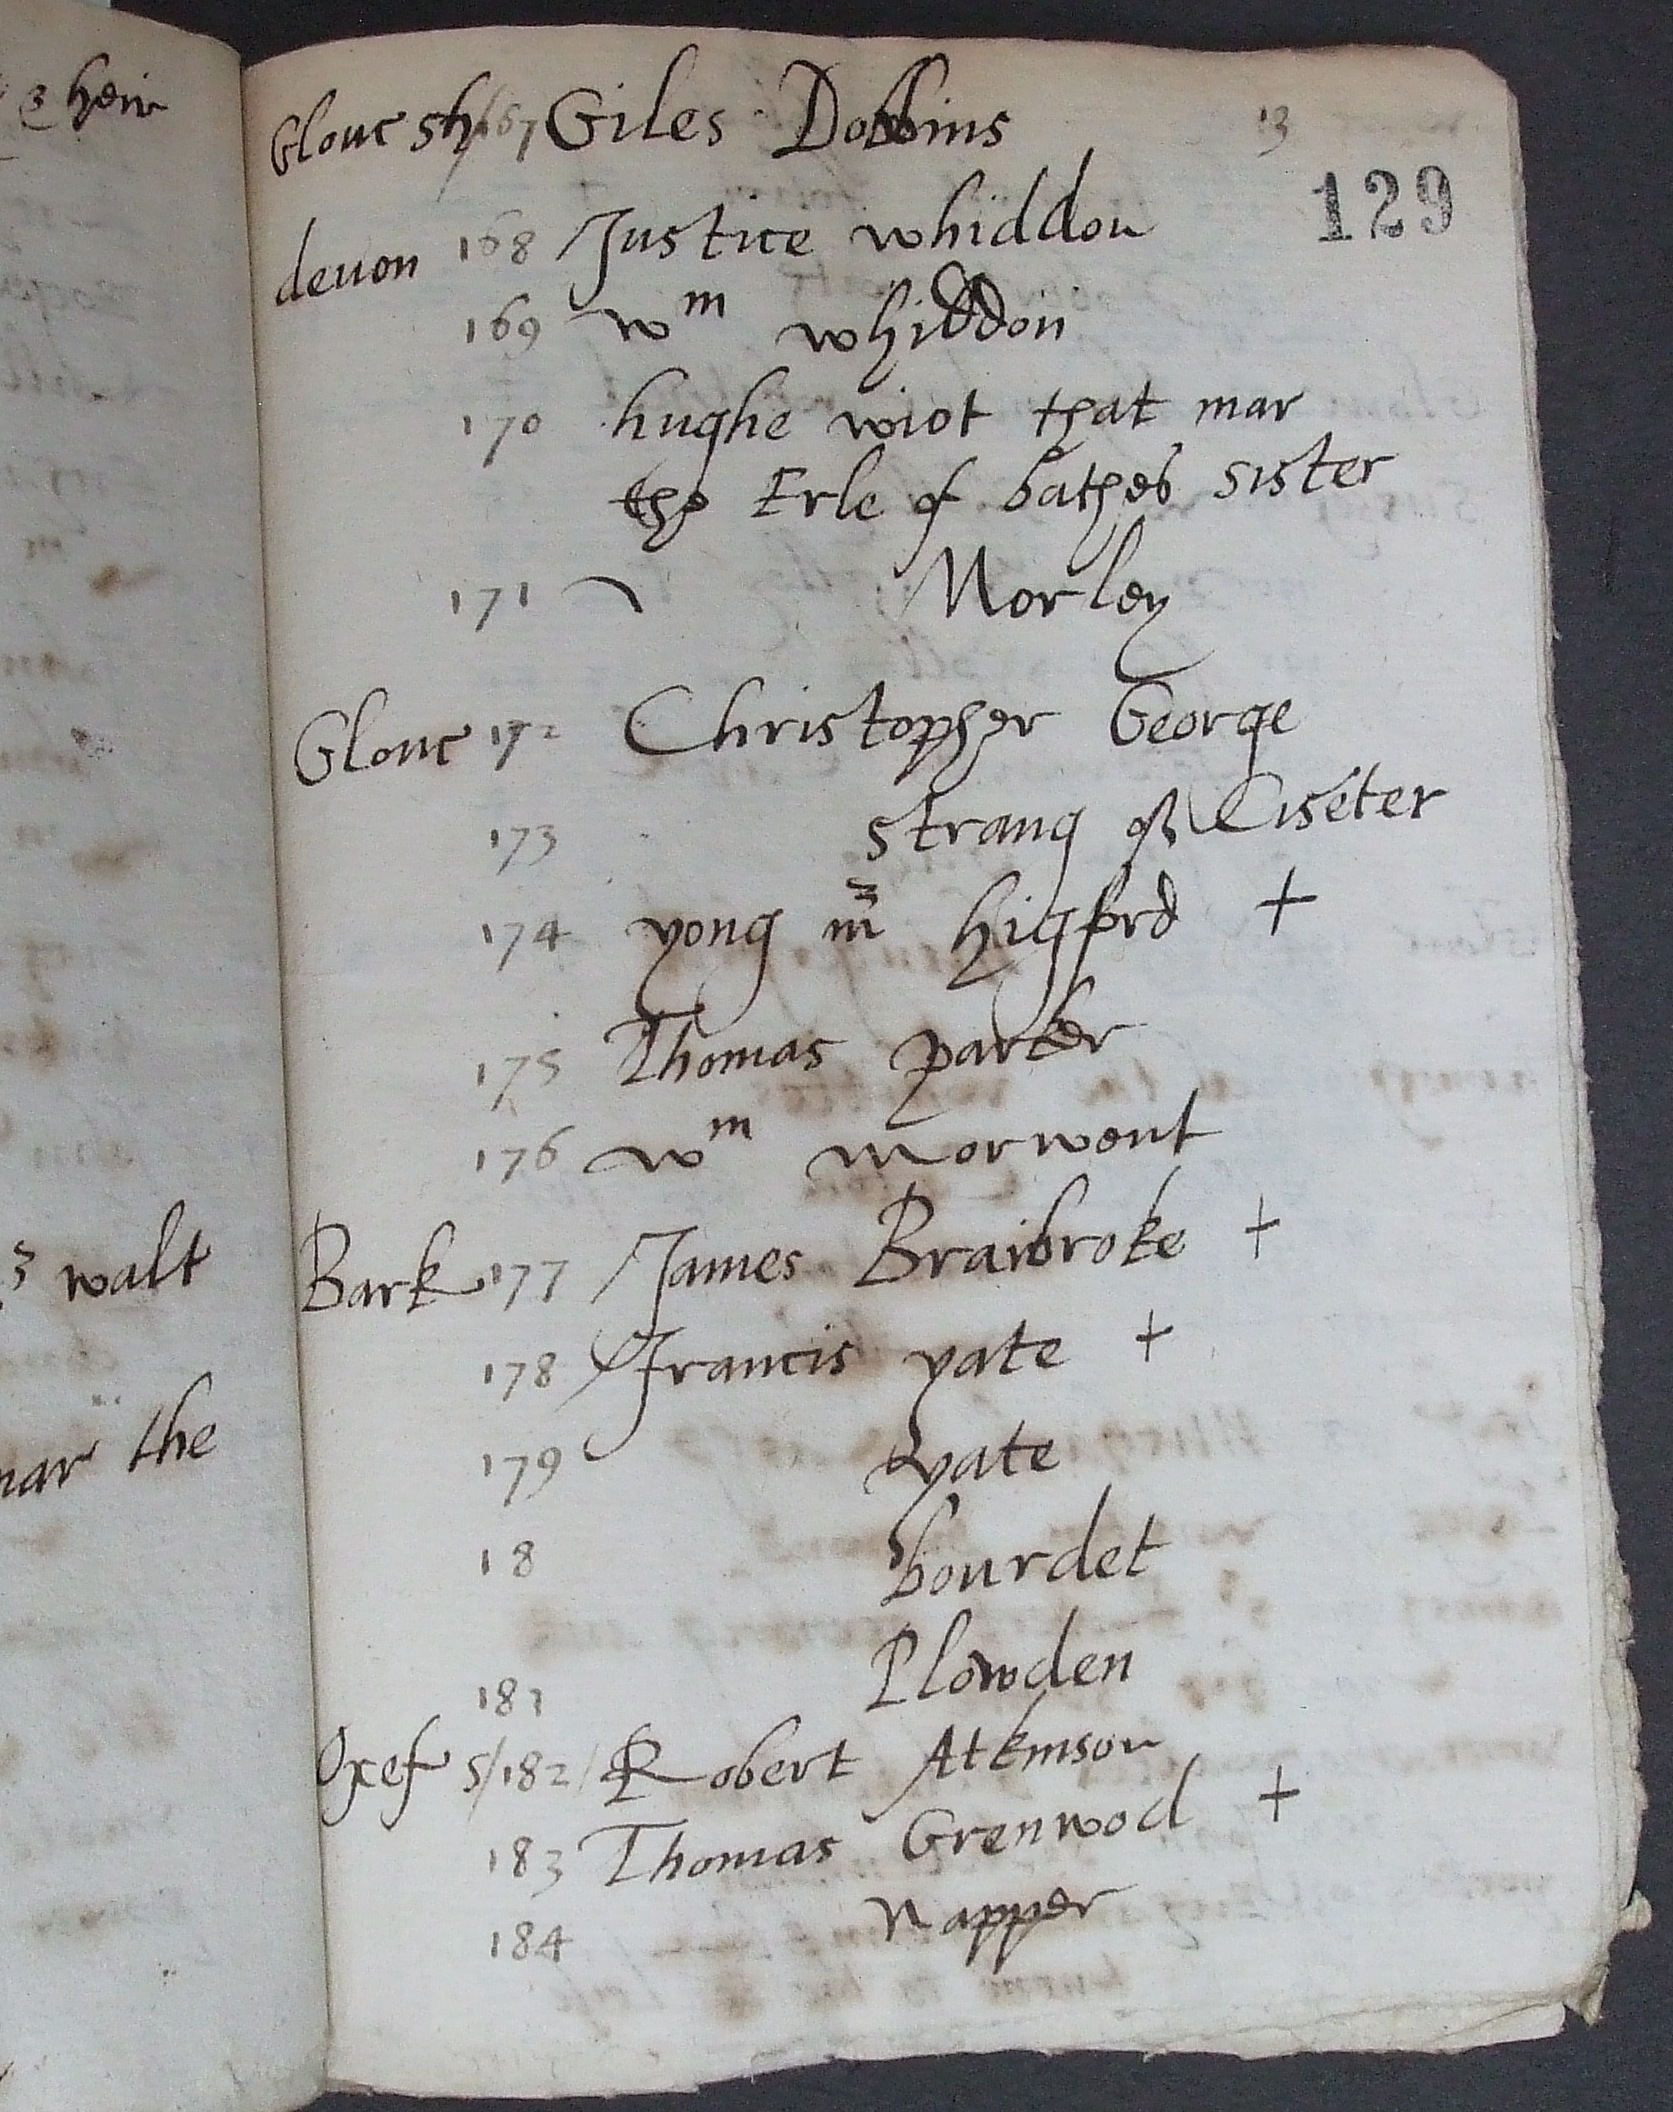 & heir
walt
mar the
13
129
Glouc sh/167 Giles Dobbins
devon 168 Justice whiddon
169 wm whiddon
170 hughe wiot that mar
the Erle of bathes sister
171 Morley
Glouc 172 Christopher George
173 strang of Ciseter
174 yong m higford +
175 Thomas parker
176 wm Morwent
Bark 177 James Braibroke +
178 Francis yate +
179 yate
18 bourdet
181 Plowden
Oxef s/182/ Robert Atkinson
183 Thomas Grenwod +
184 Napper